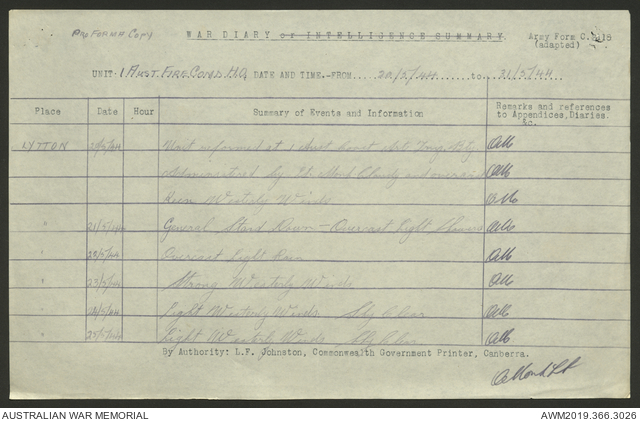 PRO FORMA COPY WAR DIARY or INTELLIGENCE SUMMARY. Army Form C.2118
(adapted)
UNIT. 1 AUST. FIRE COMD. H.Q. DATE AND TIME.-FROM.... 20/5/44 ......to... 31/5/44....
Place Date Hour Summary of Events and Information Remarks and references to Appendices, Diaries. &c.
LYTTON 20/5/44 Unit reformed at 1 Aust Coast Arty Trng Bty
Administered by Lt. and overcast
Rain Westerly Winds
" 21/5/44 General Stand Down - Overcast light showers
" 22/5/44 Overcast light Rain
" 23/5/44 Strong Westerly Winds
" 24/5/44 Light Westerly Winds Sky Clear
" 25/5/44 Light Westerly Winds Sky Clear
By Authority: L.F. Johnston, Commonwealth Government Printer, Canberra.
AUSTRALIAN WAR MEMORIAL AWM2019.366.3026